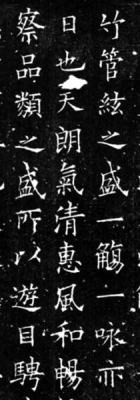 竹管絃之盛一觴一咏亦
日也天朗氣清惠風和暢
察品類之盛所以遊目騁